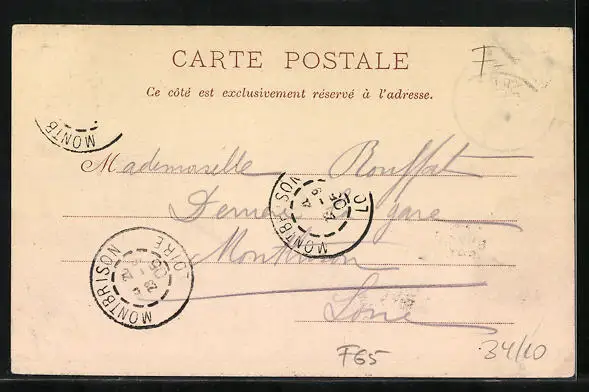 CARTE POSTALE
F
Ce côté est exclusivement réservé à l'adresse.
MONTB
Mademoiselle Rouffat
gare
Montbrison
Loire
MONTBRISON LO
MONTBRISON LOIRE
F65
34/10